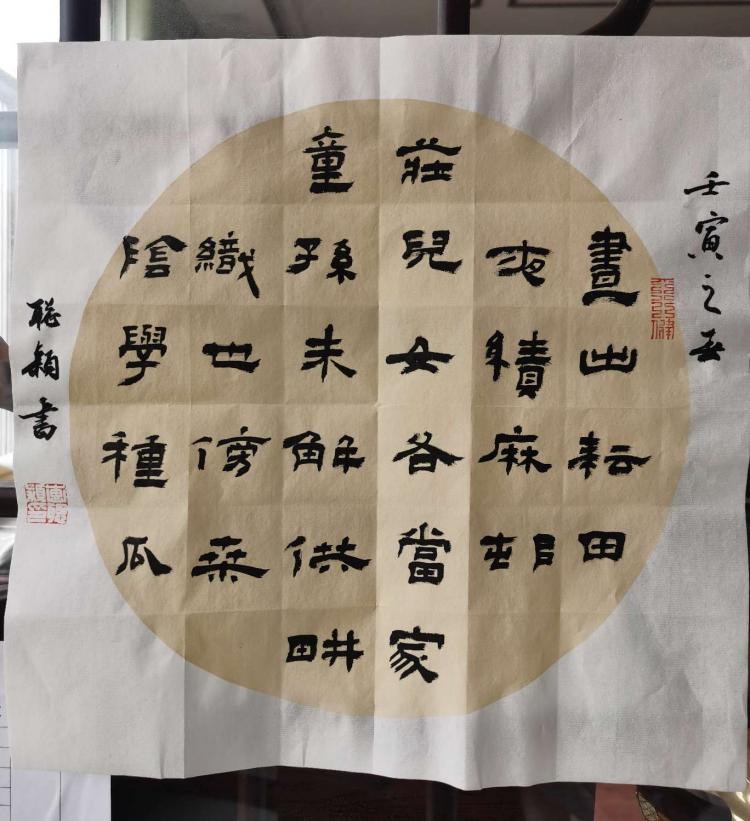 壬寅之春
晝出耘田
夜績麻邨
莊兒女各當家
童孫未解供畊
織也傍桒
陰學種瓜
聰穎書